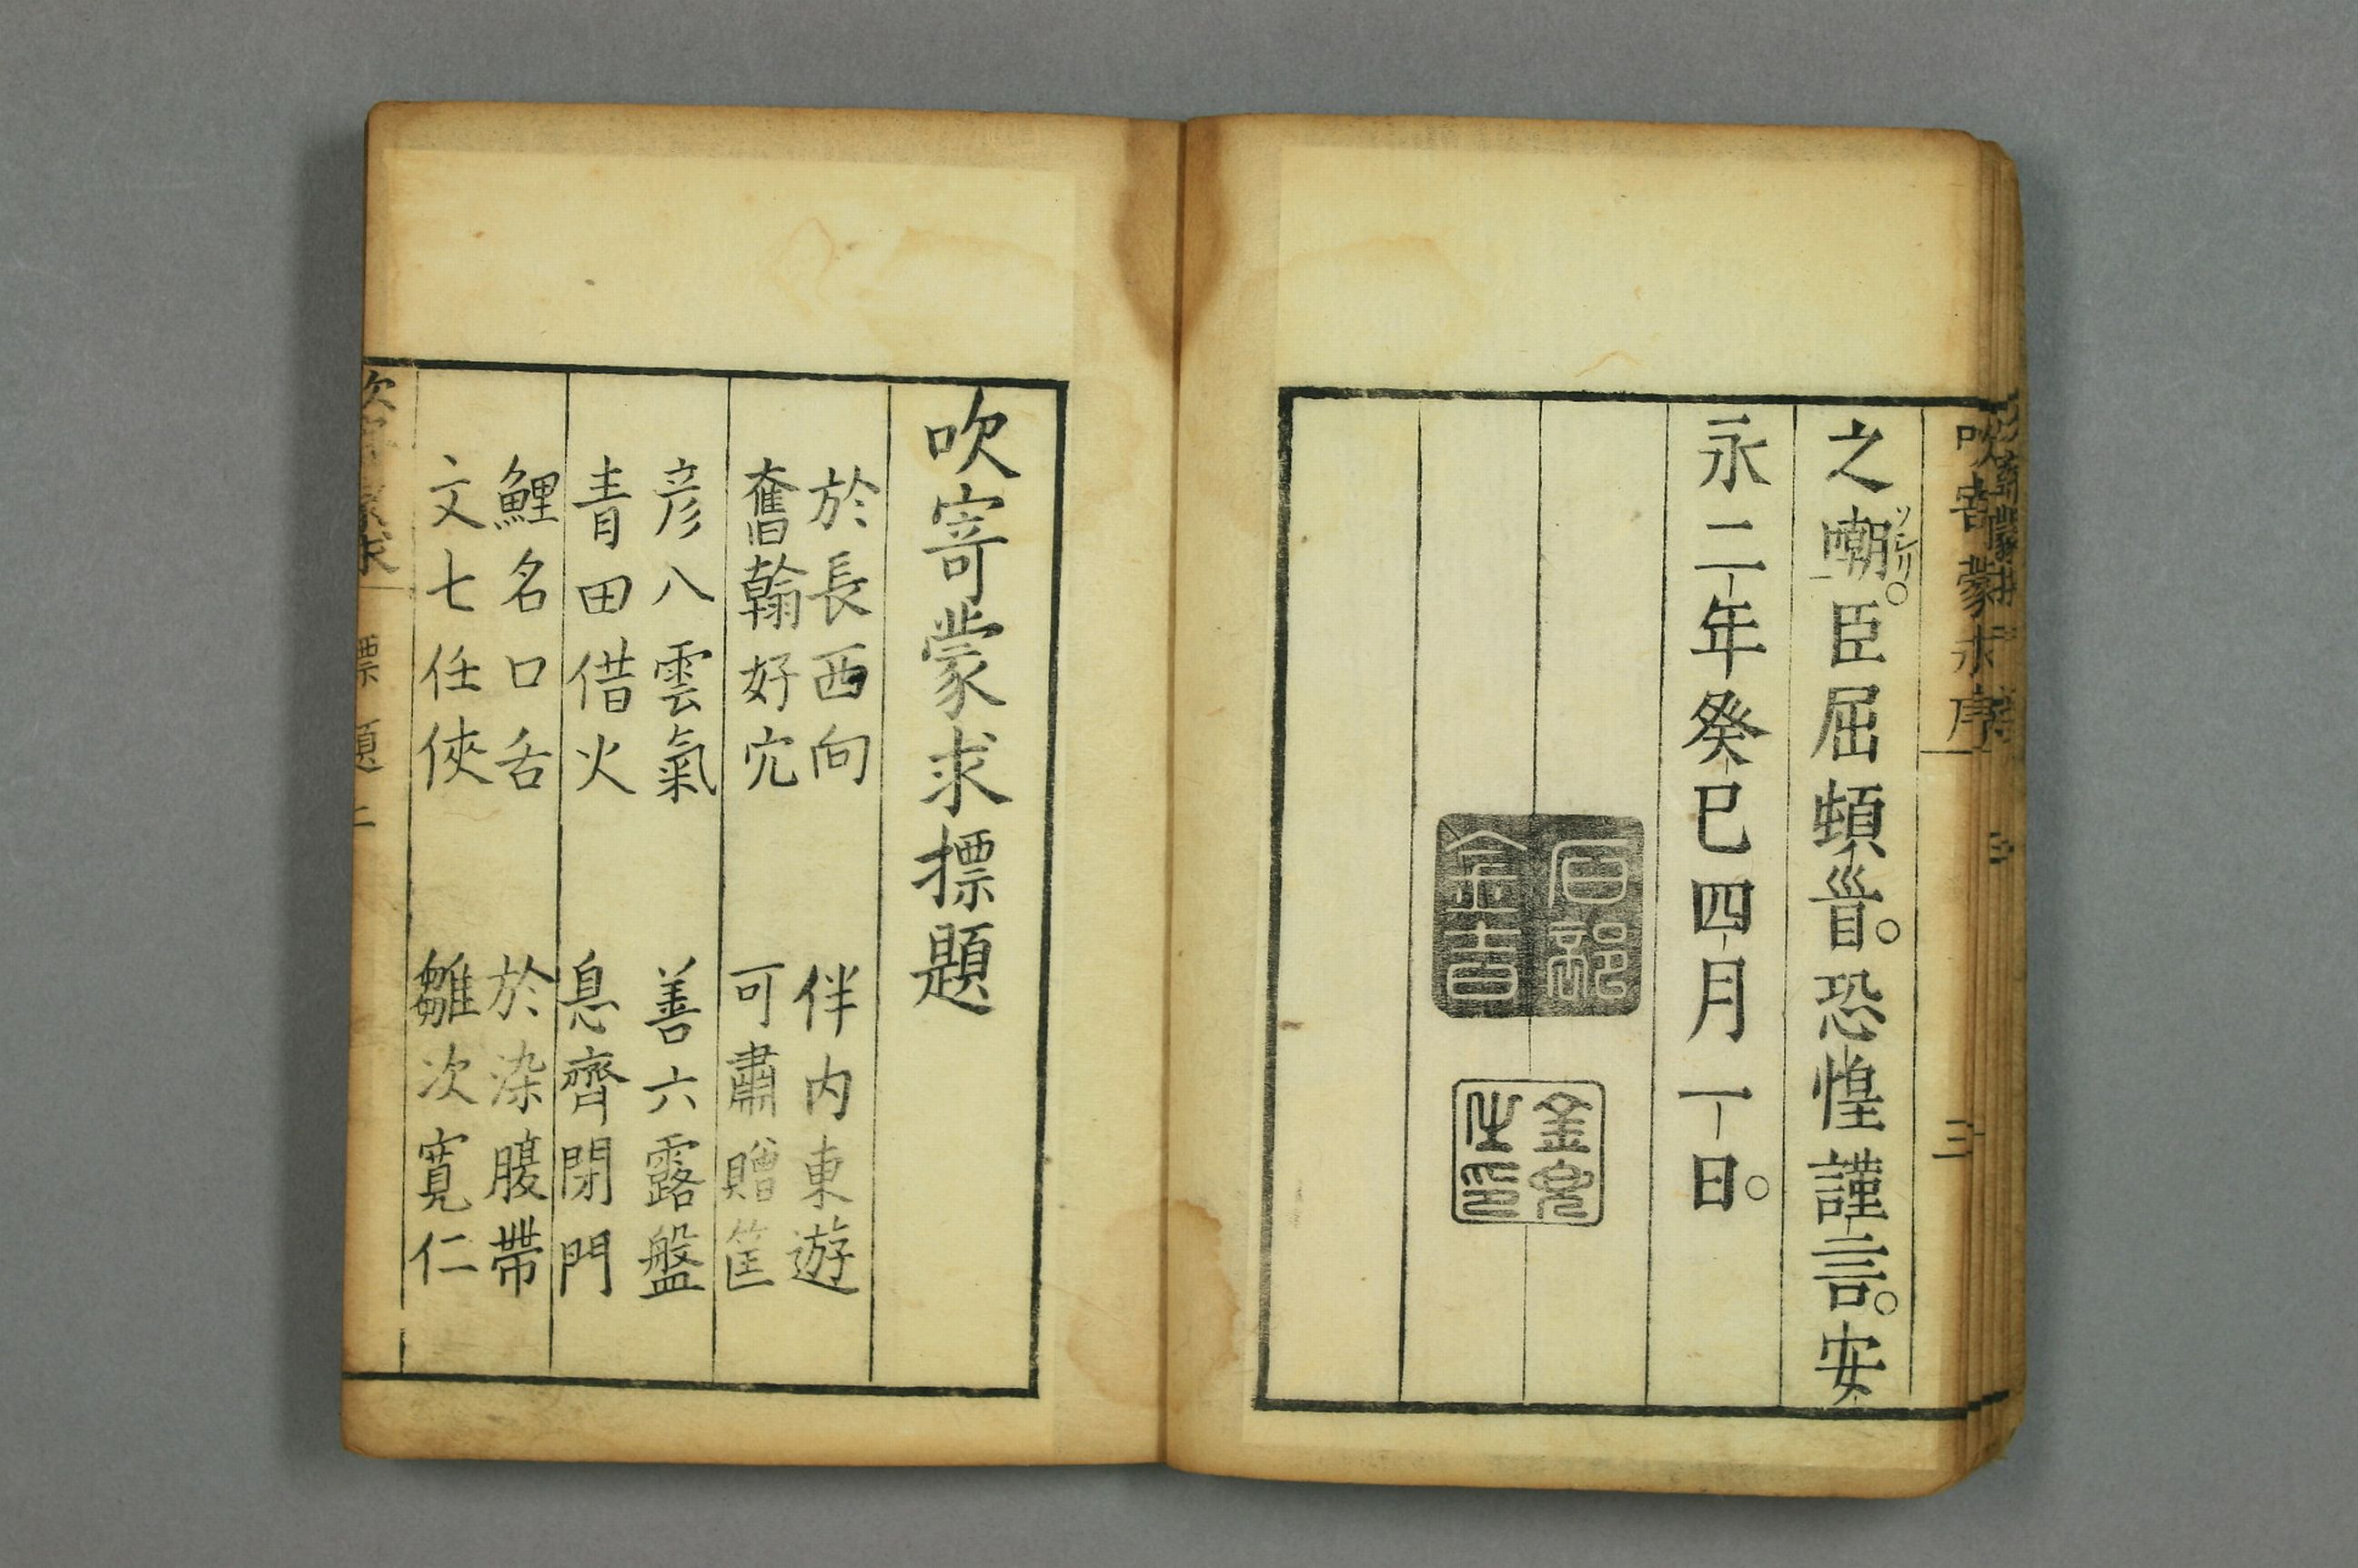 吹寄蒙求序 三
之嘲。臣屈頓首。恐惶謹言。安
ソシリ
永二年癸巳四月一日。
吹寄蒙求摽題
於長西向 伴内東遊
奮翰好穴 可肅贈筐
彦八雲氣 善六露盤
青田借火 息齊閉門
鯉名口舌 於染腹帶
文七任侠 雛次寛仁
標題 二